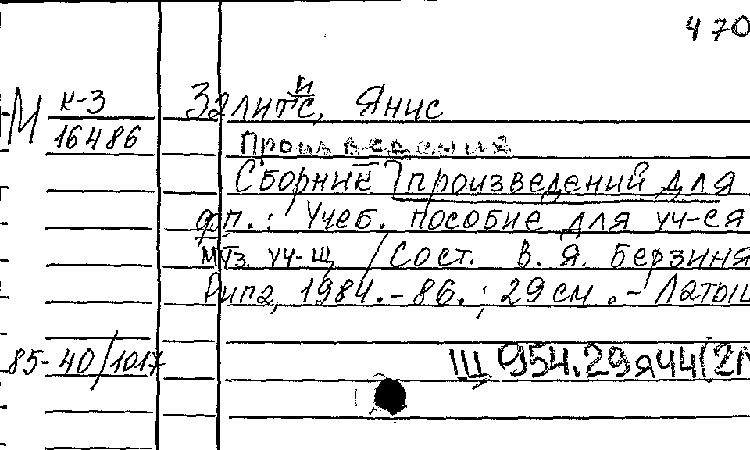 470
М к-3
16486
Залитис, Янис
Произведения
Сборник [произведений для
фп. : Учеб. пособие для уч-ся
муз. уч-щ / Сост. В. Я. Берзиня
Рига, 1984. - 86. ; 29 см. - Латыш
85-40/1017
Щ 954.29я44(2Л